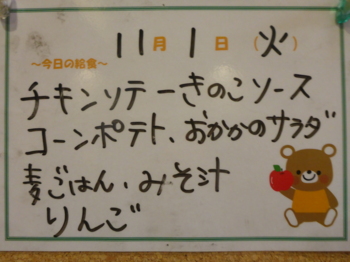 11月1日(火)
～今日の給食～
チキンソテーきのこソース
コーンポテト、おかかのサラダ
麦ごはん、みそ汁
りんご